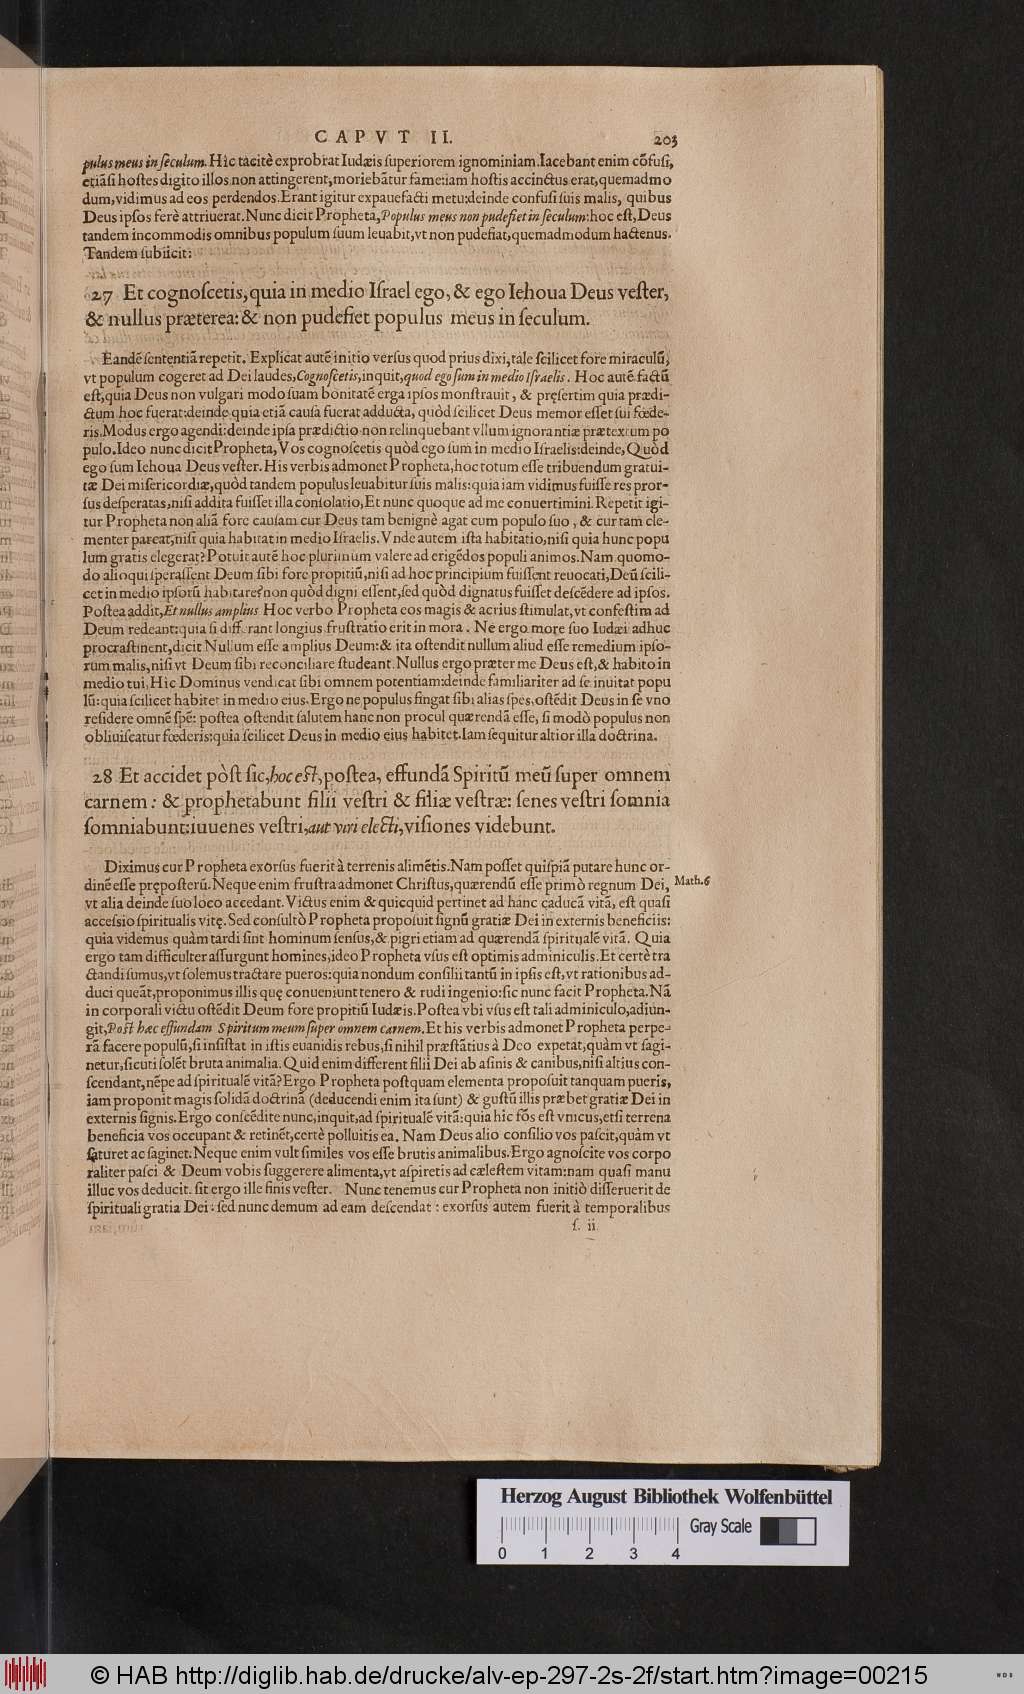 CAPVT II. 203
pulus meus in seculum. Hic tacitè exprobrat Iudæis superiorem ignominiam. Iacebant enim cõfusi,
etiãsi hostes digito illos non attingerent, moriebãtur fame: iam hostis accinctus erat, quemadmo
dum, vidimus ad eos perdendos. Erant igitur expauefacti metu: deinde confusi suis malis, quibus
Deus ipsos ferè attriuerat. Nunc dicit Propheta, Populus meus non pudefiet in seculum: hoc est, Deus
tandem incommodis omnibus populum suum leuabit, vt non pudefiat, quemadmodum hactenus.
Tandem subiicit:
27 Et cognoscetis, quia in medio Israel ego, & ego Iehoua Deus vester,
& nullus præterea: & non pudefiet populus meus in seculum.
Eandẽ sententiã repetit. Explicat autẽ initio versus quod prius dixi, tale scilicet fore miraculũ,
vt populum cogeret ad Dei laudes, Cognoscetis, inquit, quod ego sum in medio Israelis. Hoc autẽ factũ
est, quia Deus non vulgari modo suam bonitatẽ erga ipsos monstrauit, & pręsertim quia prædi-
ctum hoc fuerat: deinde quia etiã causa fuerat adducta, quòd scilicet Deus memor esset sui fœde-
ris. Modus ergo agendi: deinde ipsa prædictio non relinquebant vllum ignorantiæ prætextum po
pulo. Ideo nunc dicit Propheta, Vos cognoscetis quòd ego sum in medio Israelis: deinde, Quòd
ego sum Iehoua Deus vester. His verbis admonet Propheta, hoc totum esse tribuendum gratui-
tæ Dei misericordiæ, quòd tandem populus leuabitur suis malis: quia iam vidimus fuisse res pror-
sus desperatas, nisi addita fuisset illa consolatio, Et nunc quoque ad me conuertimini. Repetit igi-
tur Propheta non aliã fore causam cur Deus tam benignè agat cum populo suo, & cur tam cle-
menter parcat, nisi quia habitat in medio Israelis. Vnde autem ista habitatio, nisi quia hunc popu
lum gratis elegerat? Potuit autẽ hoc plurimum valere ad erigẽdos populi animos. Nam quomo-
do alioqui sperassent Deum sibi fore propitiũ, nisi ad hoc principium fuissent reuocati, Deũ scili-
cet in medio ipsorũ habitare? non quòd digni essent, sed quòd dignatus fuisset descẽdere ad ipsos.
Postea addit, Et nullus amplius Hoc verbo Propheta eos magis & acrius stimulat, vt confestim ad
Deum redeant: quia si diff rant longius frustratio erit in mora. Ne ergo more suo Iudæi adhuc
procrastinent, dicit Nullum esse amplius Deum: & ita ostendit nullum aliud esse remedium ipso-
rum malis, nisi vt Deum sibi reconciliare studeant. Nullus ergo præter me Deus est, & habito in
medio tui. Hic Dominus vendicat sibi omnem potentiam: deinde familiariter ad se inuitat popu
lũ: quia scilicet habitet in medio eius. Ergo ne populus fingat sibi alias spes, ostẽdit Deus in se vno
residere omnẽ spẽ: postea ostendit salutem hanc non procul quærendã esse, si modò populus non
obliuiscatur fœderis: quia scilicet Deus in medio eius habitet. Iam sequitur altior illa doctrina.
28 Et accidet pòst sic, hoc est, postea, effundã Spiritũ meũ super omnem
carnem: & prophetabunt filii vestri & filiæ vestræ: senes vestri somnia
somniabunt: iuuenes vestri, aut viri electi, visiones videbunt.
Diximus cur Propheta exorsus fuerit à terrenis alimẽtis. Nam posset quispiã putare hunc or-
dinẽ esse pręposterũ. Neque enim frustra admonet Christus, quærendũ esse primò regnum Dei, Math.6
vt alia deinde suo loco accedant. Victus enim & quicquid pertinet ad hanc caducã vitã, est quasi
accessio spiritualis vitę. Sed consultò Propheta proposuit signũ gratiæ Dei in externis beneficiis:
quia videmus quàm tardi sint hominum sensus, & pigri etiam ad quærendã spiritualẽ vitã. Quia
ergo tam difficulter assurgunt homines, ideo Propheta vsus est optimis adminiculis. Et certè tra
ctandi sumus, vt solemus tractare pueros: quia nondum consilii tantũ in ipsis est, vt rationibus ad-
duci queãt, proponimus illis quę conueniunt tenero & rudi ingenio: sic nunc facit Propheta. Nã
in corporali victu ostẽdit Deum fore propitiũ Iudæis. Postea vbi vsus est tali adminiculo, adiun-
git, Post hæc effundam Spiritum meum super omnem carnem. Et his verbis admonet Propheta perpe-
rã facere populũ, si insistat in istis euanidis rebus, si nihil præstãtius à Deo expetat, quàm vt sagi-
netur, sicuti solẽt bruta animalia. Quid enim different filii Dei ab asinis & canibus, nisi altius con-
scendant, nẽpe ad spiritualẽ vitã? Ergo Propheta postquam elementa proposuit tanquam pueris,
iam proponit magis solidã doctrinã (deducendi enim ita sunt) & gustũ illis præbet gratiæ Dei in
externis signis. Ergo conscẽdite nunc, inquit, ad spiritualẽ vitã: quia hic fõs est vnicus, etsi terrena
beneficia vos occupant & retinẽt, certè polluitis ea. Nam Deus alio consilio vos pascit, quàm vt
saturet ac saginet. Neque enim vult similes vos esse brutis animalibus. Ergo agnoscite vos corpo
raliter pasci & Deum vobis suggerere alimenta, vt aspiretis ad cælestem vitam: nam quasi manu
illuc vos deducit. sit ergo ille finis vester. Nunc tenemus cur Propheta non initiò disseruerit de
spirituali gratia Dei: sed nunc demum ad eam descendat: exorsus autem fuerit à temporalibus
s. ii
Herzog August Bibliothek Wolfenbüttel
Gray Scale
0 1 2 3 4
© HAB http://diglib.hab.de/drucke/alv-ep-297-2s-2f/start.htm?image=00215